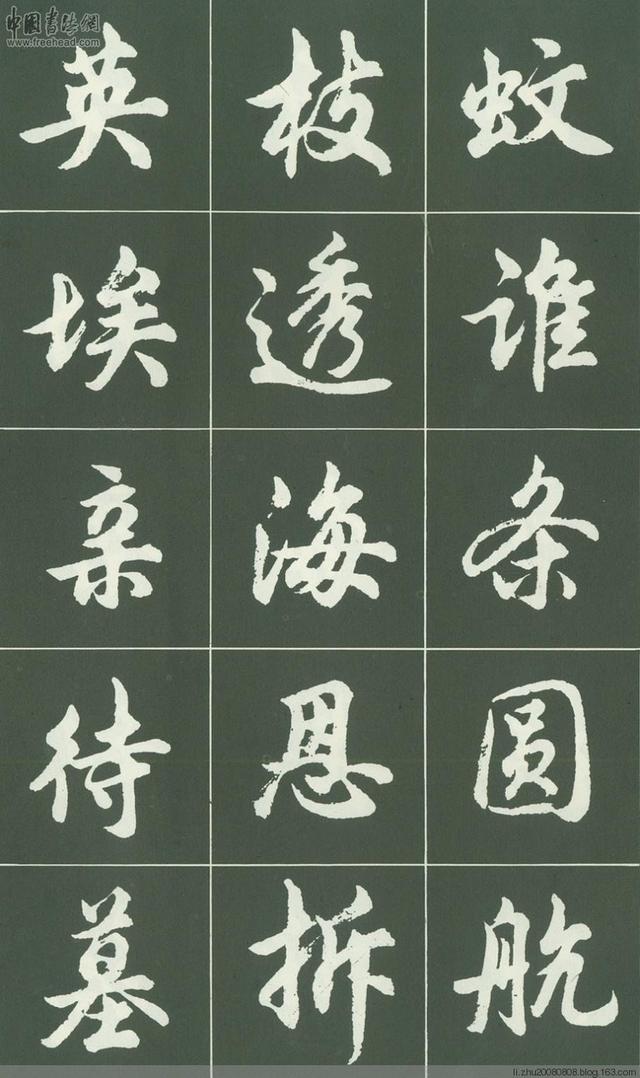 中国书法网
www.freehead.com
英 枝 蚊
埃 透 谁
亲 海 条
待 恩 圆
墓 拆 航
li.zhu20080808.blog.163.com